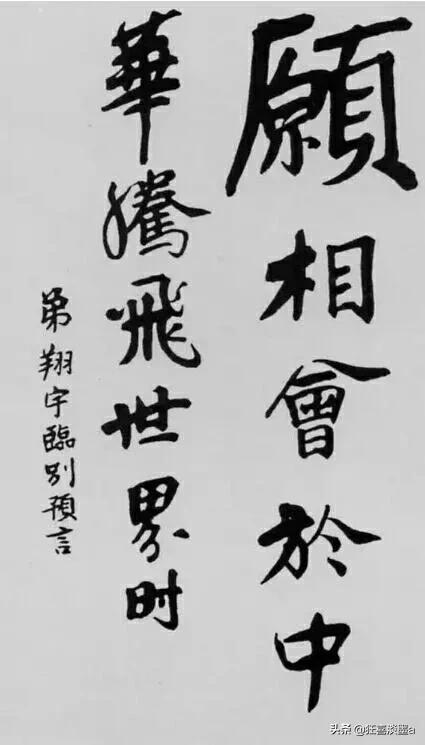 願相會於中
華騰飛世界时
弟翔宇臨别預言
头条 @狂喜淡墨a